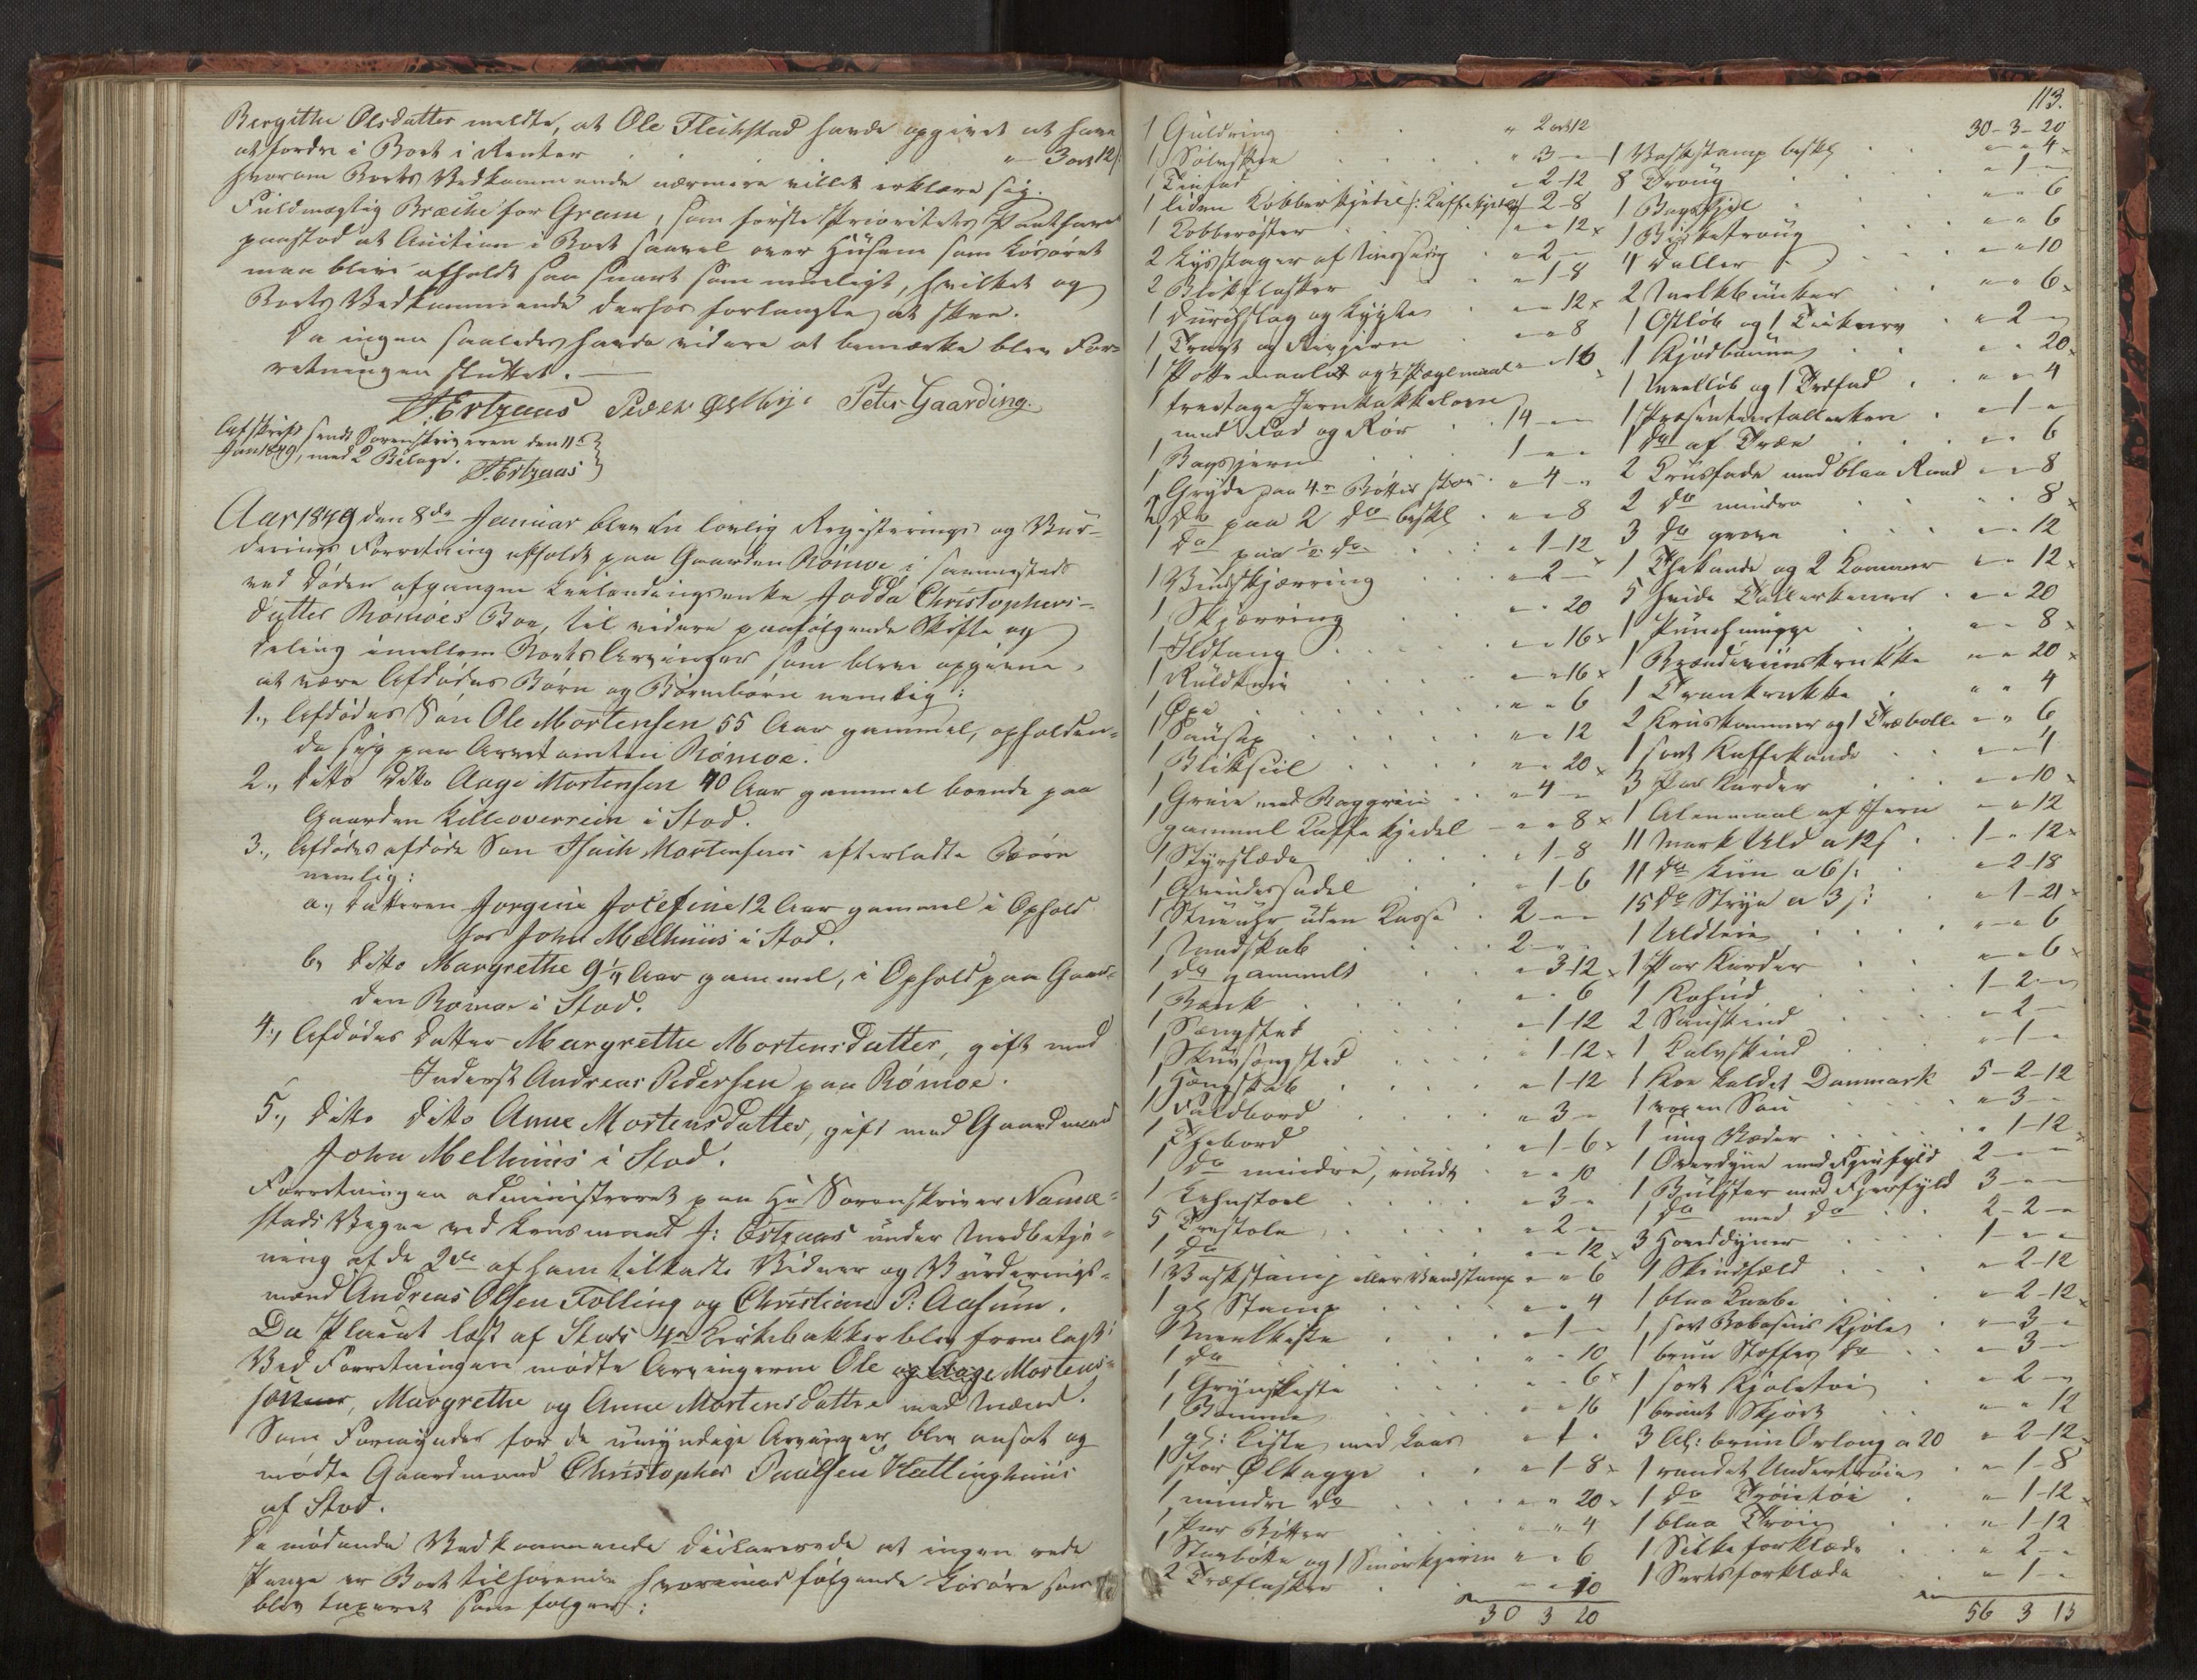 Bergithe Olsdatter meldte, at Ole Fleskstad havde opgivet at have
at fordre i Boet i Renter . . . . " - 3 ort 12 s
hvorom Boets Vedkommende nærmere vilde erklære sig.
Fuldmægtig Bræche for Gram, som første Prioritets Panthaver
paastod at Auction i Boet saavel over Husene som Løsøret
maa blive afholdt saa snart som mueligt, hvilket og
Boets Vedkommende derhos forlangte at skee.
Da ingen saaledes havde videre at bemærke blev For-
retningen sluttet. —
Peter Gaarding.
Afskrift sendt Sorenskriveren den 11te
Jan 1849, med 2 Bilage.
Aar 1849 den 8de Januar blev en lovlig Registerings og Vur-
derings Forretning afholdt paa Gaarden Rømoe i sammesteds
ved Døden afgangen Huusmandsenke Jodda Christophers-
datter Rømoes Boe, til videre paafølgende Skifte og
Deling imellem Boets Arvinger som bleve opgivne
at være Afdødes Børn og Børnebørn nemlig:
1., Afdødes Søn Ole Mortensen 55 Aar gammel, opholden-
de sig paa Rømoe.
2., ditto ditto Aage Mortensen 40 Aar gammel boende paa
Gaarden i Stod.
3., Afdødes afdøde Søn Isach Mortensens efterladte Børn
nemlig:
a., Datteren Jorgine Josefine 12 Aar gammel i Ophold
hos John Melhuus i Stod.
b, ditto Margrethe 9 1/4 Aar gammel, i Ophold paa Gaar-
den Rømoe i Stod.
4., Afdødes Datter Margrethe Mortensdatter, gift med
Inderst Andreas Pedersen paa Rømoe.
5., ditto ditto Anne Mortensdatter, gift med Gaardmand
John Melhuus i Stod.
Forretningen administreret paa Hr Sorenskriver
Vegne ved Lensmand under Medbetje-
ning af de 2de af ham tilkaldte Vidner og Vurderings-
mænd Andreas Olsen Følling og Christian P: Aasum.
Da Placat læst af Stods Kirkebakke blev fremlagt
Ved Forretningen mødte Arvingerne Ole og Aage Mortens-
sønner, Margrethe og Anne Mortensdattre med Mænd.
Som Formynder for de umyndige Arvinger blev ansat og
mødte Gaardmand Christopher Paulsen
af Stod.
De mødende Vedkommende declarerede at ingen rede
Penge er Boet tilhørende hvorimod følgende Løsøre som
blev taxeret som følger:
113.
1 Guldring . . " 2 ort 12
1 Sølvskee . . " 3 -
1 Tinfad " 2-12
1 liden Kobberkjedel /: Kaffekjedel " 2-8
1 Kobberøster " " 12
2 Lysstager af Messing " 2 -
2 Blikflasker " 1-8
1 Durchslag og Lygte " " 12
1 Tragt og Rivjern " " 8
1 Pottemaal og 1/2 Pæglemaal " " 16
1 treetages Jernkakkelovn
med Fod og Rør 14 - -
1 Bagsjern 1 - -
1 Gryde paa 4re Bøtter " 4 -
1 do paa 2 do beskd " " 8
1 do paa 1/2 do " 1-12
1 " 2 -
1 Skjærring " " 20
1 Ildtang " " 16
1 " " 16
1 Øxe " " 6
1 " " 12
1 " " 20
1 " 4 -
1 gammel Kaffekjedel " " 8
1 " 1-8
1 " 1-6
1 Stueuhr uden Kasse 2 - -
1 Madskab 2 - -
1 do gammelt " 3-12
1 Bænk " " 6
1 Sængsted " 1-12
1 " 1-12
1 Hængskab " 1-12
1 Foldbord " 3 -
1 Thebord " 1-6
1 do mindre, rundt " " 10
1 Lehnstoel " 3 -
5 Træstole " 2 -
1 do " " 12
1 Vaskstamp eller Vandstamp " " 6
1 gl Stamp " " 4
1 Meelkiste " 1 -
1 do " " 10
1 Grynkiste " " 6
1 Bomme " " 16
1 gl: Kiste med Laas " 1 -
1 stor Ølkagge " 1-8
1 mindre do " " 20
1 Par Bøtter " " 4
1 og 1 Smørkjerne " " 6
2 Træflasker " " 10
30 3 20
30-3-20
1 Vaskstamp beskd " " 4
8 Troug " 1 -
1 Bagefjel " " 6
1 Troug " " 6
4 Daller " " 10
2 Melkbunker " " 6
1 Ostløb og 1 " 2 -
1 Kjødbomme " " 20
1 og 1 Træfad " " 4
1 Præsenteertallerken " 1 -
1 do af Træe " " 6
2 Kruusfade med blaa Rand " " 8
2 do mindre " " 8
3 do grove " " 12
1 Thekande og 2 Kommer " " 12
5 hvide Tallerkener " " 20
1 Punchmugge " " 8
1 Brændeviinskrukke " " 20
1 Trankrukke " " 4
2 Kruuskommer og 1 Træbolle " " 6
1 sort Kaffekande " " 1
3 Par Karder " " 10
1 Alenmaal af Jern " " 12
11 Mark Uld a 12 s 1 - 12
11 do Liin a 6 s: " 2-18
15 do Stryn a 3 s: " 1-21
1 " " 6
1 Par Karder " " 6
1 Kohud 1-2-
2 Sauskind " 2 -
1 Kalvskind " 1 -
1 Koe kaldet Danmark 5-2-12
1 voxen Sau " 3 -
1 ung Væder " 1-12
1 Overdyne med Fjærfyld 2 - -
1 Bulster med Fjærfyld 3 - -
1 do med do 2-2-
3 Hoveddyner 1 - -
1 Skindfæld " 2-12
1 blaa Kaabe " 2-12
1 sort Bobasins Kjole " 3 -
1 bruun Stoffes do " 3 -
1 sort Kjoletøi " 2 -
1 bruunt Skjørt " " 12
3 Al: bruun a 20 " 2-12
1 randet Undertrøie " 1-8
1 do Trøietøi " 1-12
1 blaa Trøie " 1-12
1 Silkeforklæde " 2 -
1 Sirtsforklæde " 1 -
56 3 13